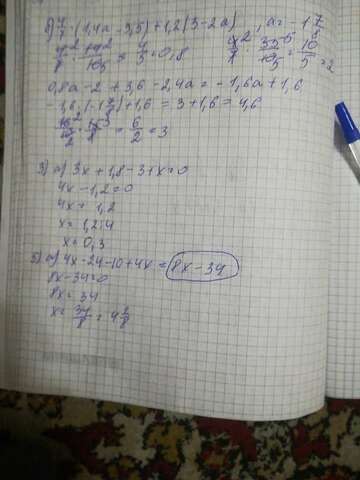 б) 4/7 · (1,4a - 3,5) + 1,2(3 - 2a) , a = -1 7/8
4/7 · 14/10 = 4/5 = 0,8    4/7 · 35/10 = 10/5 = 2
0,8a - 2 + 3,6 - 2,4a = -1,6a + 1,6
-1,6 · (-1 7/8) + 1,6 = 3 + 1,6 = 4,6
16/10 · 15/8 = 6/2 = 3
3) a) 3x + 1,8 - 3 + x = 0
4x - 1,2 = 0
4x = 1,2
x = 1,2 : 4
x = 0,3
5) a) 4x - 24 - 10 + 4x = 8x - 34
8x - 34 = 0
8x = 34
x = 34/8 = 4 2/8